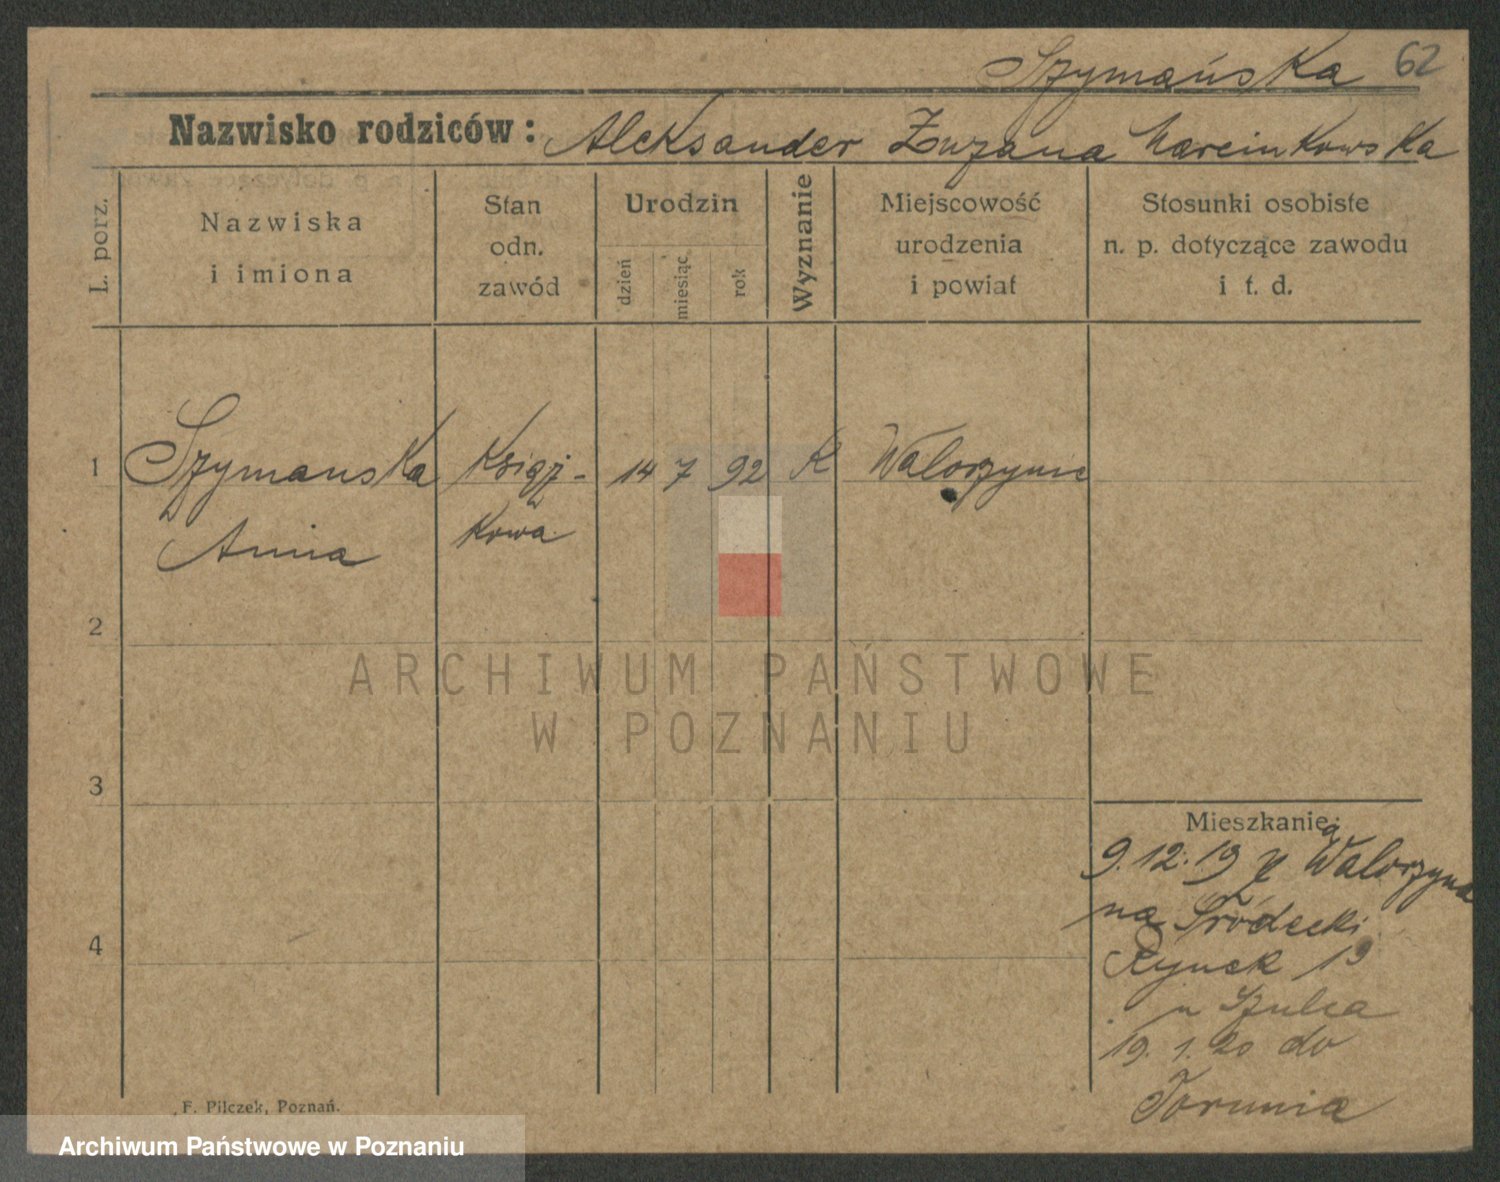 Szymańska 62
Nazwisko rodziców: Aleksander Zuzana Marcinkowska
L. porz.
Nazwiska
i imiona
Stan
odn.
zawód
Urodzin
dzień
miesiąc
rok
Wyznanie
Miejscowość
urodzenia
i powiat
Stosunki osobiste
n. p. dotyczące zawodu
i t. d.
1 Szymanska Książ- 14 7 92 K Walorzynie
Anna kowa
2
ARCHIWUM PAŃSTWOWE
W POZNANIU
3
Mieszkanie:
9.12.19 z Walorzyna
na Śródecki
4
Rynek 19
u Szulca
19.1.20 do
Torunia
F. Pilczek, Poznań.
Archiwum Państwowe w Poznaniu